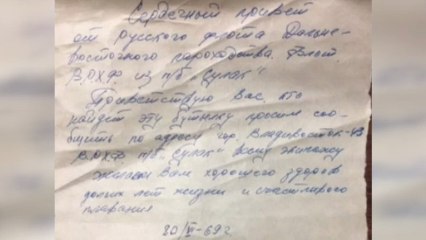 Сердечный привет
от русского флота Дальне-
восточного пароходства.
В.О.Х.Ф из п/б "Сулак"
Приветствую Вас, кто
найдет эту бутылку просим соо-
бщить по адресу гор. Владивосток-43
В.Р.Х.Ф п/б "Сулак" всему экипажу
желаем Вам хорошего здоров
долгих лет жизни и счастливого
плавания
20/VI-69г